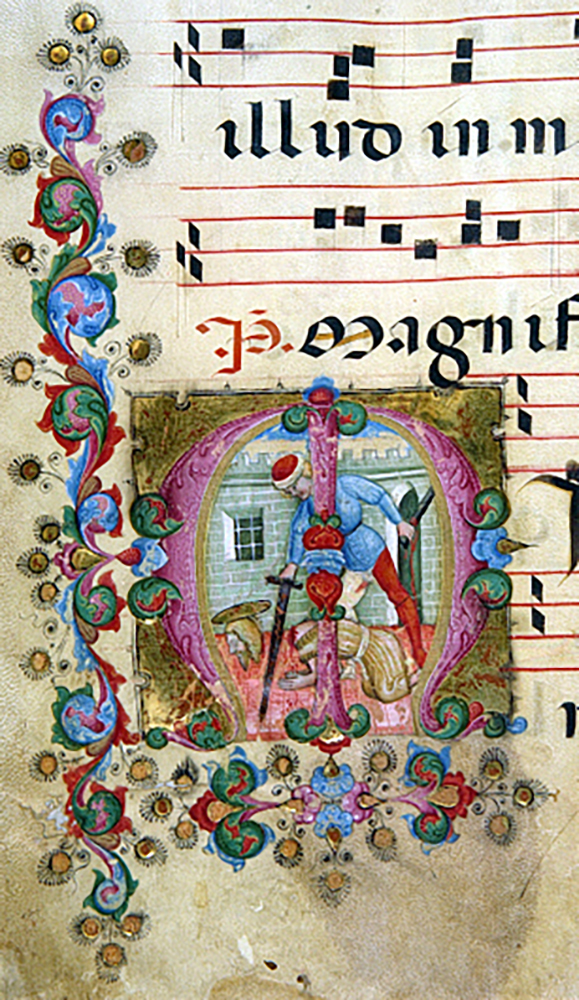 illud in m
P. Magnif
M